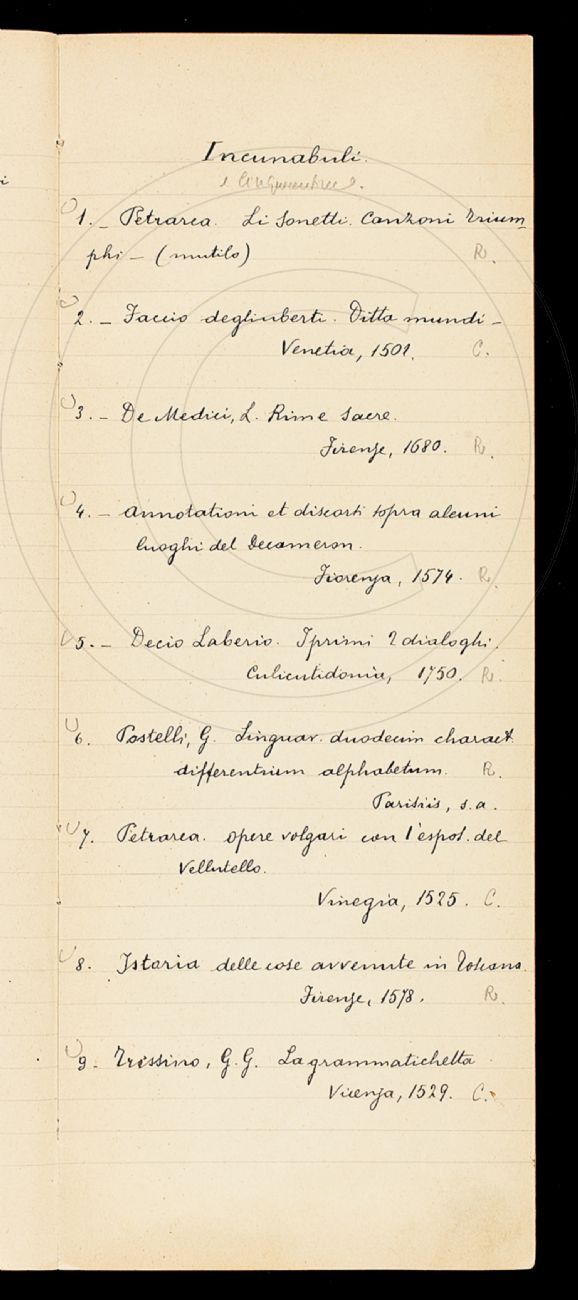 Incunabuli.
e Cinquecentine.
1. - Petrarca. Li Sonetti. Canzoni Trium_
phi - (mutilo) R.
2. - Faccio degliuberti. Ditta mundi -
Venetia, 1501. C.
3. - De Medici, L. Rime sacre.
Firenze, 1680. R.
4. - Annotationi et discorsi sopra alcuni
luoghi del Decameron.
Fiorenza, 1574. R.
5. - Decio Laberio. I primi 2 dialoghi.
Culicutidonia, 1750. R.
6. Postelli, G. Linguar. duodecim charact.
differentium alphabetum. R.
Parisiis, s.a.
7. Petrarca. Opere volgari con l'espos. del
Vellutello.
Vinegia, 1525. C.
8. Istoria delle cose avvenute in Toscana.
Firenze, 1578. R.
9. Trissino, G.G. La grammatichetta.
Vicenza, 1529. C.